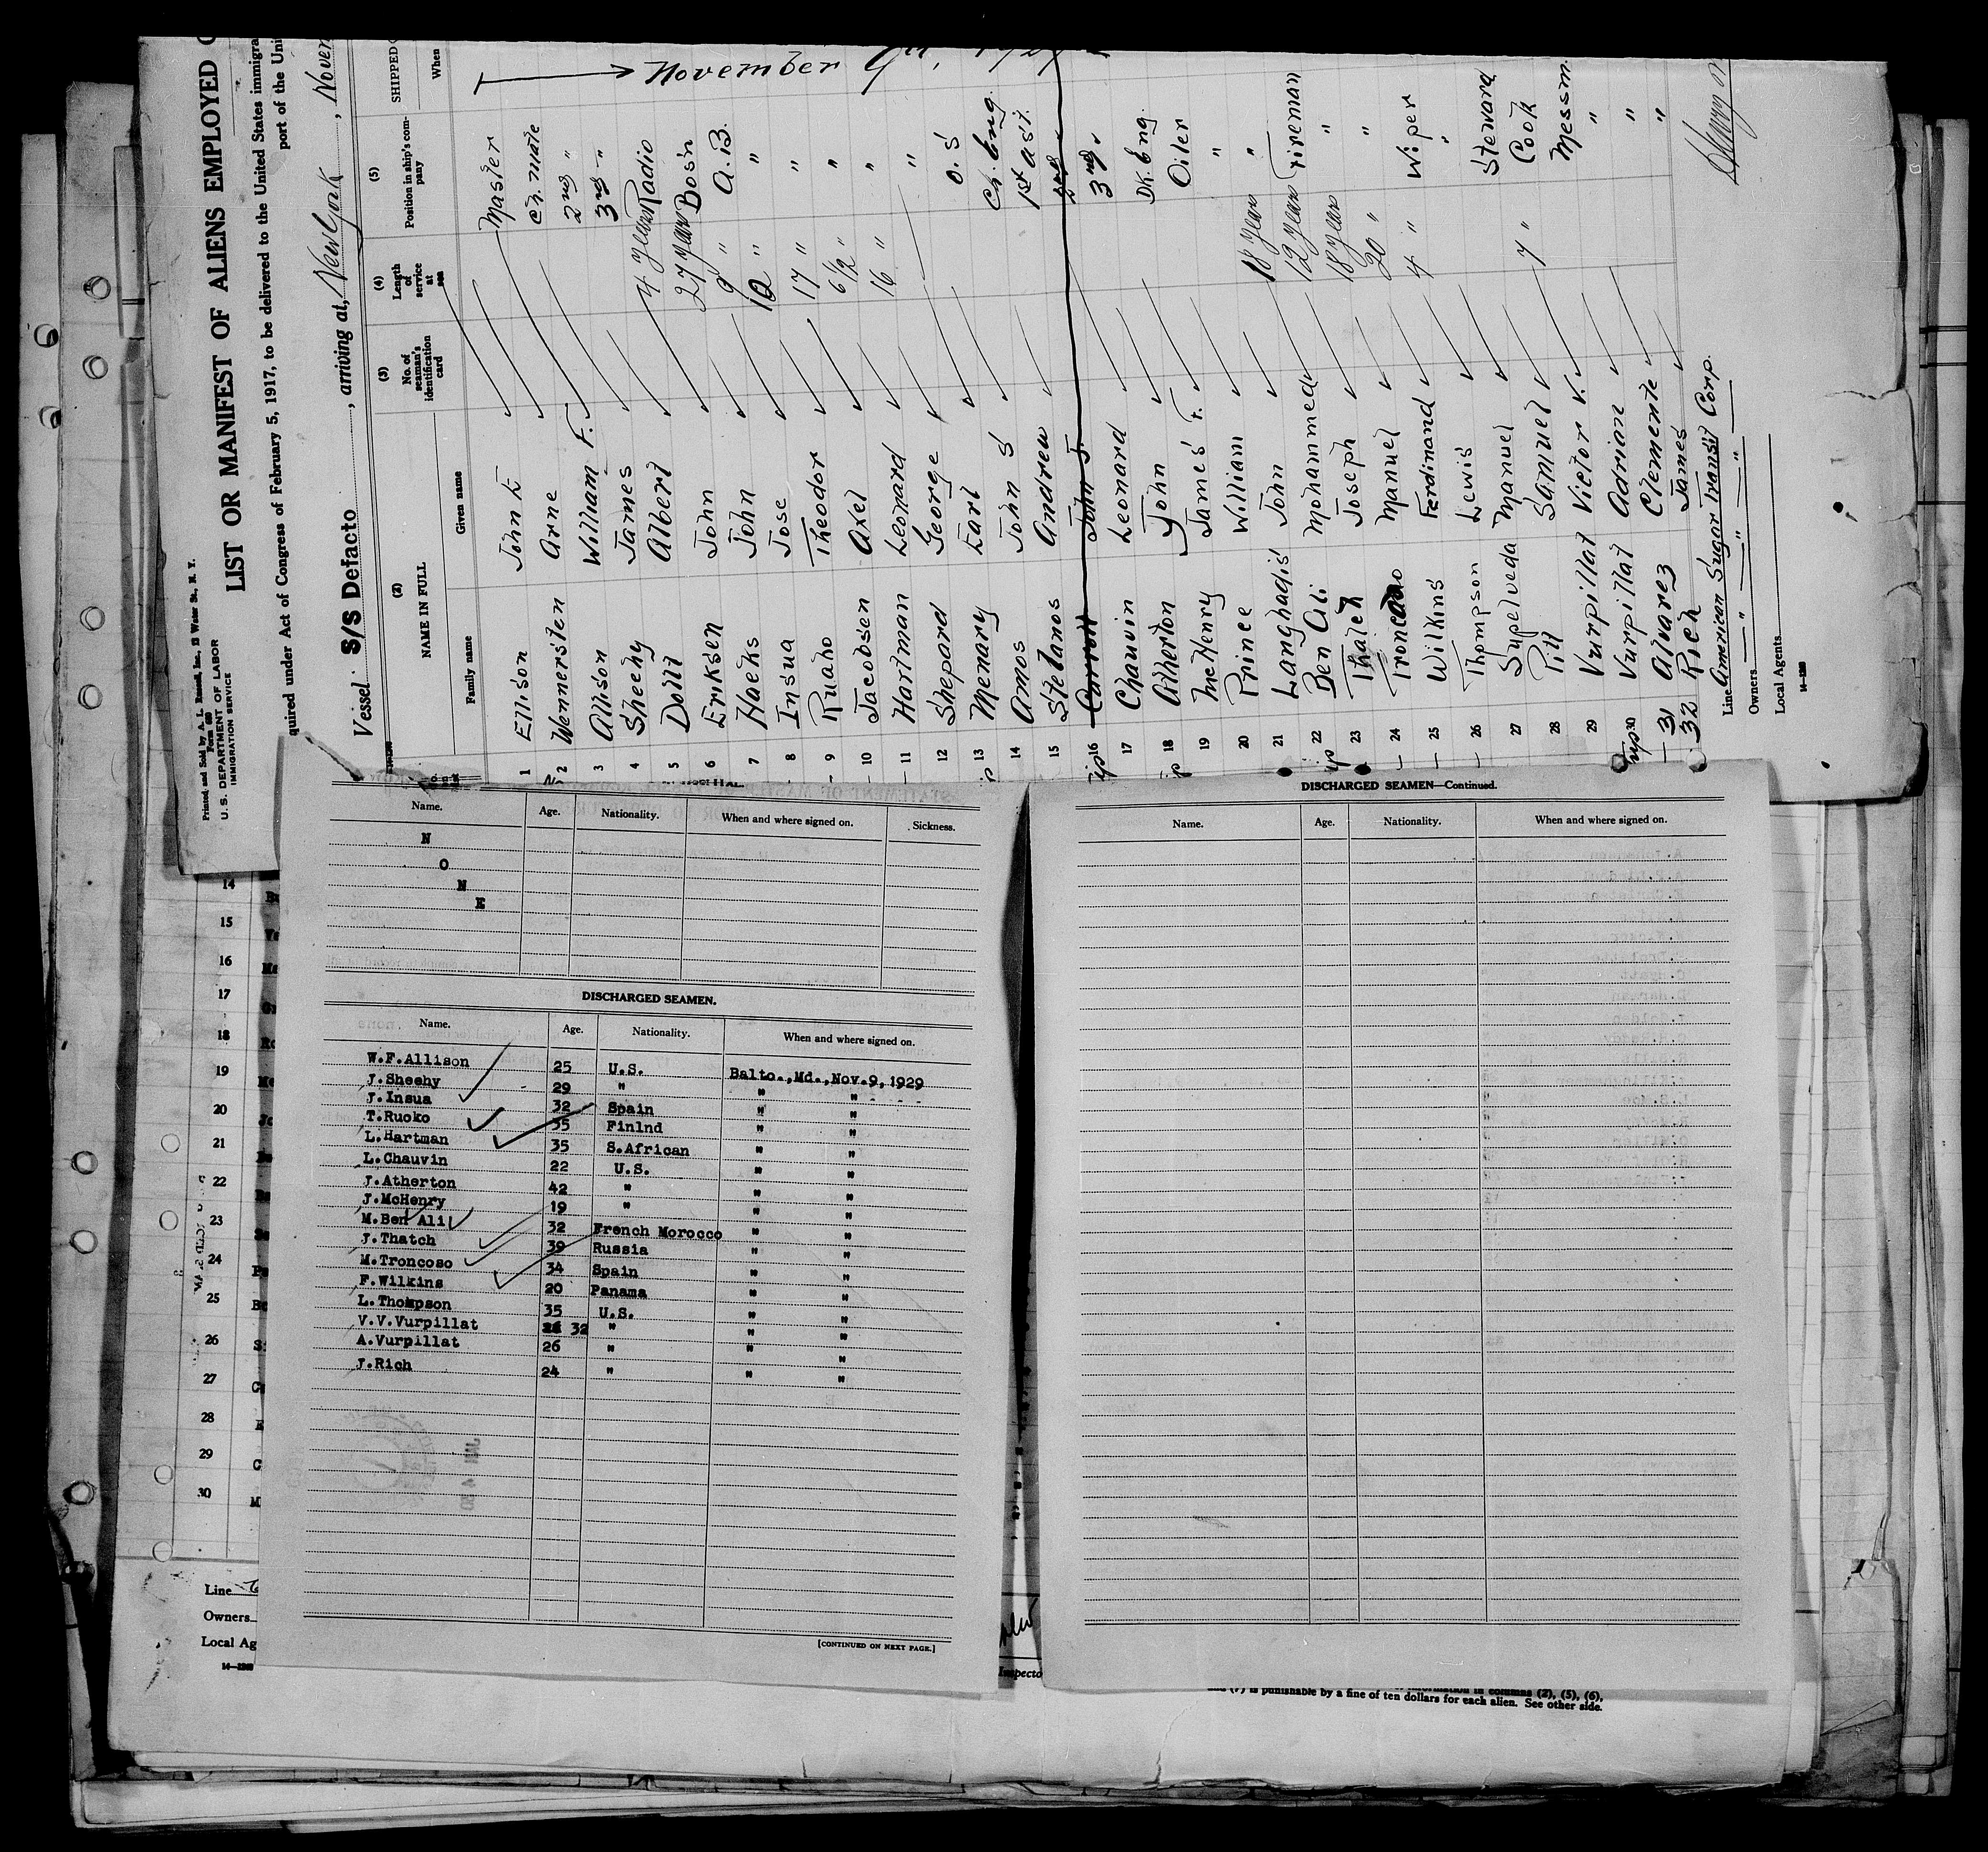 Printed and Sold by A. L. Russell, Inc., 12 Water St., N. Y.
Form 680
U. S. DEPARTMENT OF LABOR
IMMIGRATION SERVICE
LIST OR MANIFEST OF ALIENS EMPLOYED
quired under Act of Congress of February 5, 1917, to be delivered to the United States immigra
port of the Uni
Vessel S/S Defacto, arriving at, New York, Novem
(2) (3) (4) (5)
NAME IN FULL No. of seaman's identification card Length of service at sea Position in ship's company SHIPPED
Family name Given name When
November
1 Ellison John E Master
2 Wennersten Arne Ch. Mate
3 Allison William F. 2nd "
4 Sheehy James 3rd "
5 Doill Albert 4 years Radio
6 Eriksen John 27 years Bos'n
7 Haeks John 9 " A.B.
8 Insua Jose 10 " "
9 Ruoho Theodor 17 " "
10 Jacobsen Axel 6 1/2 " "
11 Hartman Leonard 16 " "
12 Shepard George "
13 Menary Earl O.S
14 Amos John S Ch. Eng.
15 Stefanos Andrew 1st Ast.
16 Carroll John J. 2nd
17 Chauvin Leonard 3rd "
18 Atherton John Dk. Eng.
19 McHenry James F. Oiler
20 Prince William "
21 Langhadis John 18 years "
22 Ben Ali Mohammed 12 years Fireman
23 Thatch Joseph 18 years "
24 Troncoso Manuel 20 " "
25 Wilkins Ferdinand 4 " Wiper
26 Thompson Lewis "
27 Supelveda Manuel Steward
28 Pill Samuel 7 " Cook
29 Vurpillat Victor V. Messm
30 Vurpillat Adrian "
31 Alvarez Clemente "
32 Rich James "
Line American Sugar Transit Corp.
Owners " " "
Local Agents
14—1240
Name. Age. Nationality. When and where signed on. Sickness.
N
O
N
E
DISCHARGED SEAMEN.
Name. Age. Nationality. When and where signed on.
W.F.Allison 25 U.S. Balto.,Md.,Nov.9,1929
J.Sheehy 29 " " "
J.Insua 32 Spain " "
T.Ruoko 35 Finlnd " "
L.Hartman 35 S.African " "
L.Chauvin 22 U.S. " "
J.Atherton 42 " " "
J.McHenry 19 " " "
M.Ben Ali 32 French Morocco " "
J.Thatch 39 Russia " "
M.Troncoso 34 Spain " "
F.Wilkins 20 Panama " "
L.Thompson 35 U.S. " "
V.V.Vurpillat 32 " " "
A.Vurpillat 26 " " "
J.Rich 24 " " "
[CONTINUED ON NEXT PAGE.]
DISCHARGED SEAMEN—Continued.
Name. Age. Nationality. When and where signed on.
14
15
16
17
18
19
20
21
22
23
24
25
26
27
28
29
30
Line
Owners
Local Ag
Inspecto
information in columns (2), (5), (6),
and (7) is punishable by a fine of ten dollars for each alien. See other side.